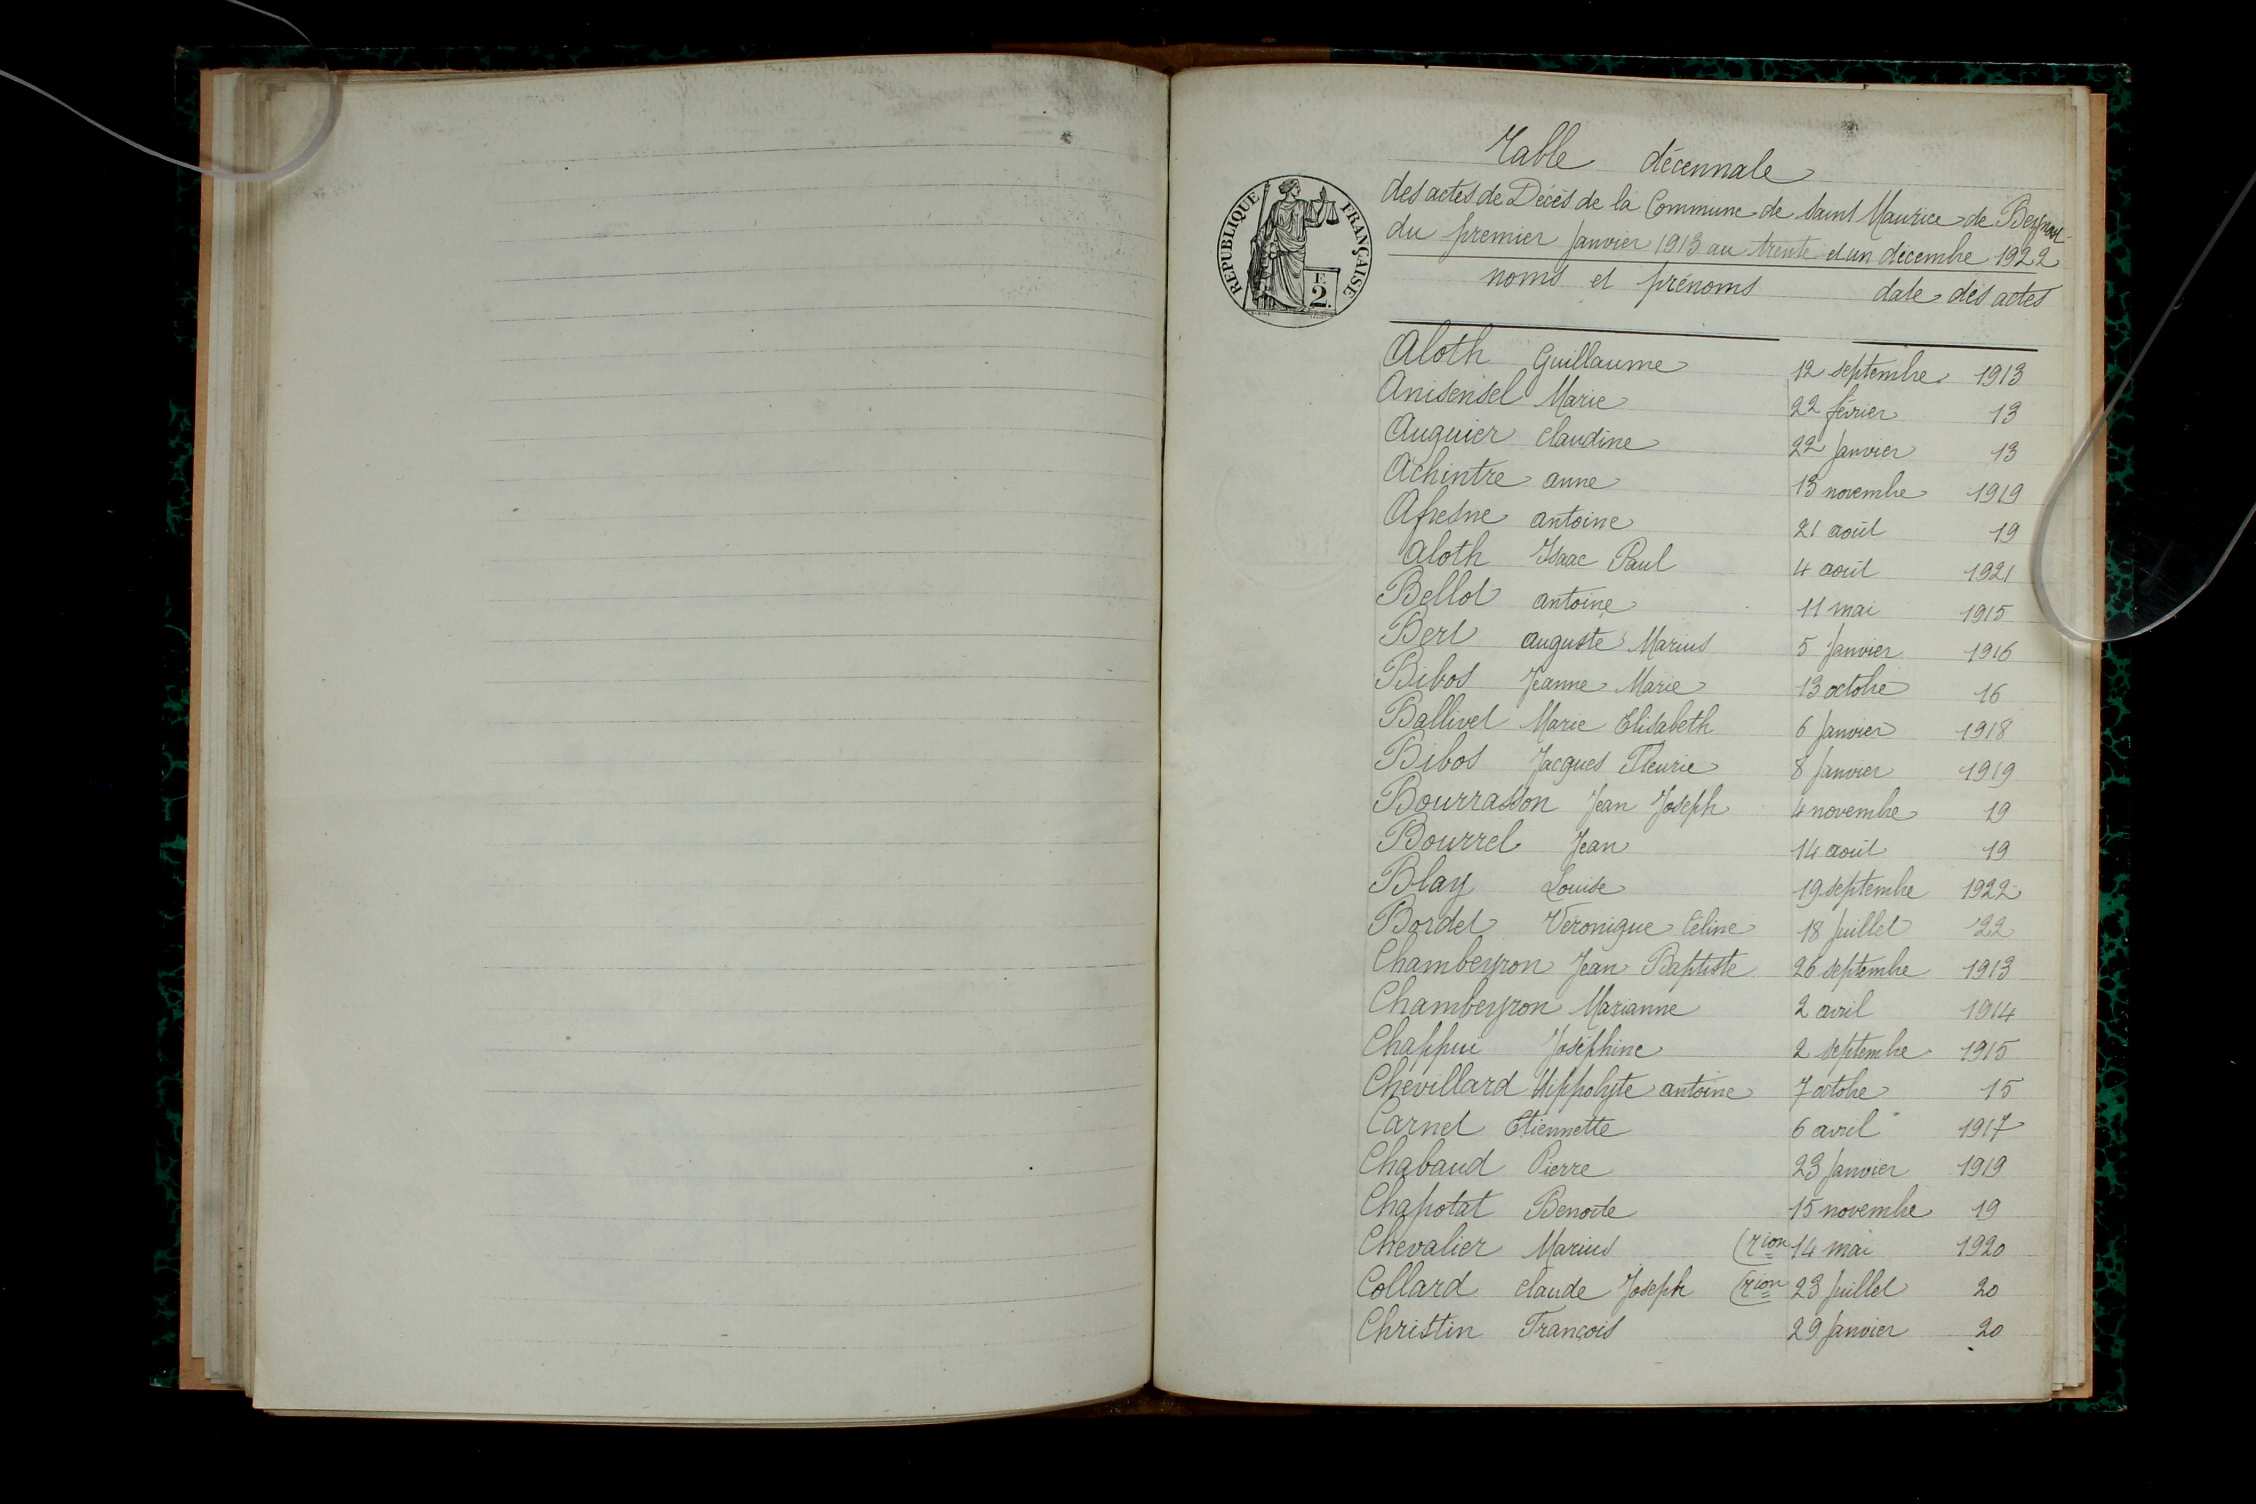 RÉPUBLIQUE FRANÇAISE
F.
2.
Table décennale
des actes de Décès de la Commune de Saint Maurice de Beynost
du premier Janvier 1913 au trente et un décembre 1922
noms et prénoms date des actes
Aloth Guillaume 12 septembre 1913
Anisensel Marie 22 février 13
Auguier Claudine 22 Janvier 13
Achintre anne 13 novembre 1919
Afresne antoine 21 août 19
Aloth Isaac Paul 4 août 1921
Bellot antoine 11 mai 1915
Bert auguste Marius 5 Janvier 1916
Bibos Jeanne Marie 13 octobre 16
Ballivet Marie Elisabeth 6 Janvier 1918
Bibos Jacques Fleurie 8 Janvier 1919
Bourrasson Jean Joseph 4 novembre 19
Bourrel Jean 14 août 19
Blay Louise 19 septembre 1922
Bordet Véronique Céline 18 Juillet 22
Chambeyron Jean Baptiste 26 septembre 1913
Chambeyron Marianne 2 avril 1914
Chappui Joséphine 2 septembre 1915
Chevillard Hippolyte antoine 7 octobre 15
Carnet Etiennette 6 avril 1917
Chabaud Pierre 23 Janvier 1919
Chapotat Benoite 15 novembre 19
Chevalier Marius (rion 14 mai 1920
Collard Claude Joseph (rion 23 Juillet 20
Christin François 29 Janvier 20